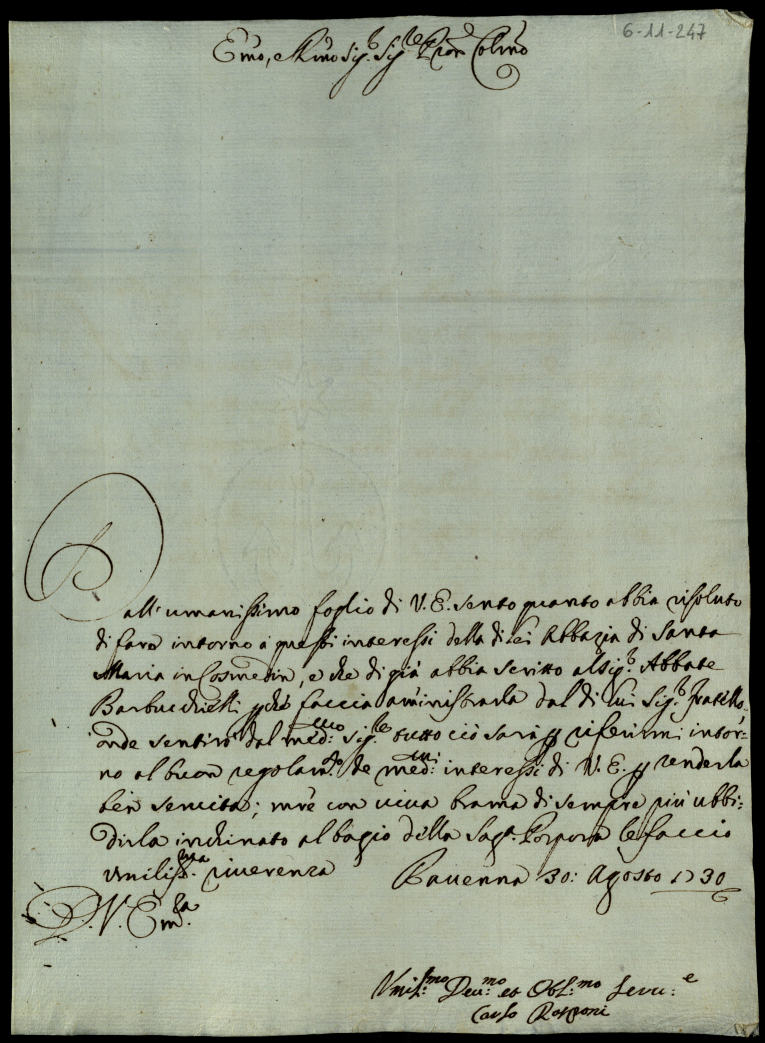 6-11-247
Emo, e Rmo Sig.r Sig.re Pron Colmo
Dall'umanissimo foglio di V. E. sento quanto abbia risoluto
di fare intorno a questi interessi della di lei Abbazia di Santa
Maria in Cosmedin, e che di già abbia scritto al Sig.r Abbate
Barbucchielli p che faccia aministrarla dal di lui Sig.r fratello,
onde sentirò dal med:mo Sig.re tutto ciò sarà p riferirmi intor:
no al buon regolam.to de med:mi interessi di V. E. p renderla
ben servita; mre con viva brama di sempre più ubbi:
dirla inchinato al bagio della Sag.a Porpora le faccio
umiliss.ma riverenza Ravenna 30: Agosto 1730
D. V. Em.za
Umil:mo Dev:mo et Obl:mo Serv:e
Carlo Rasponi